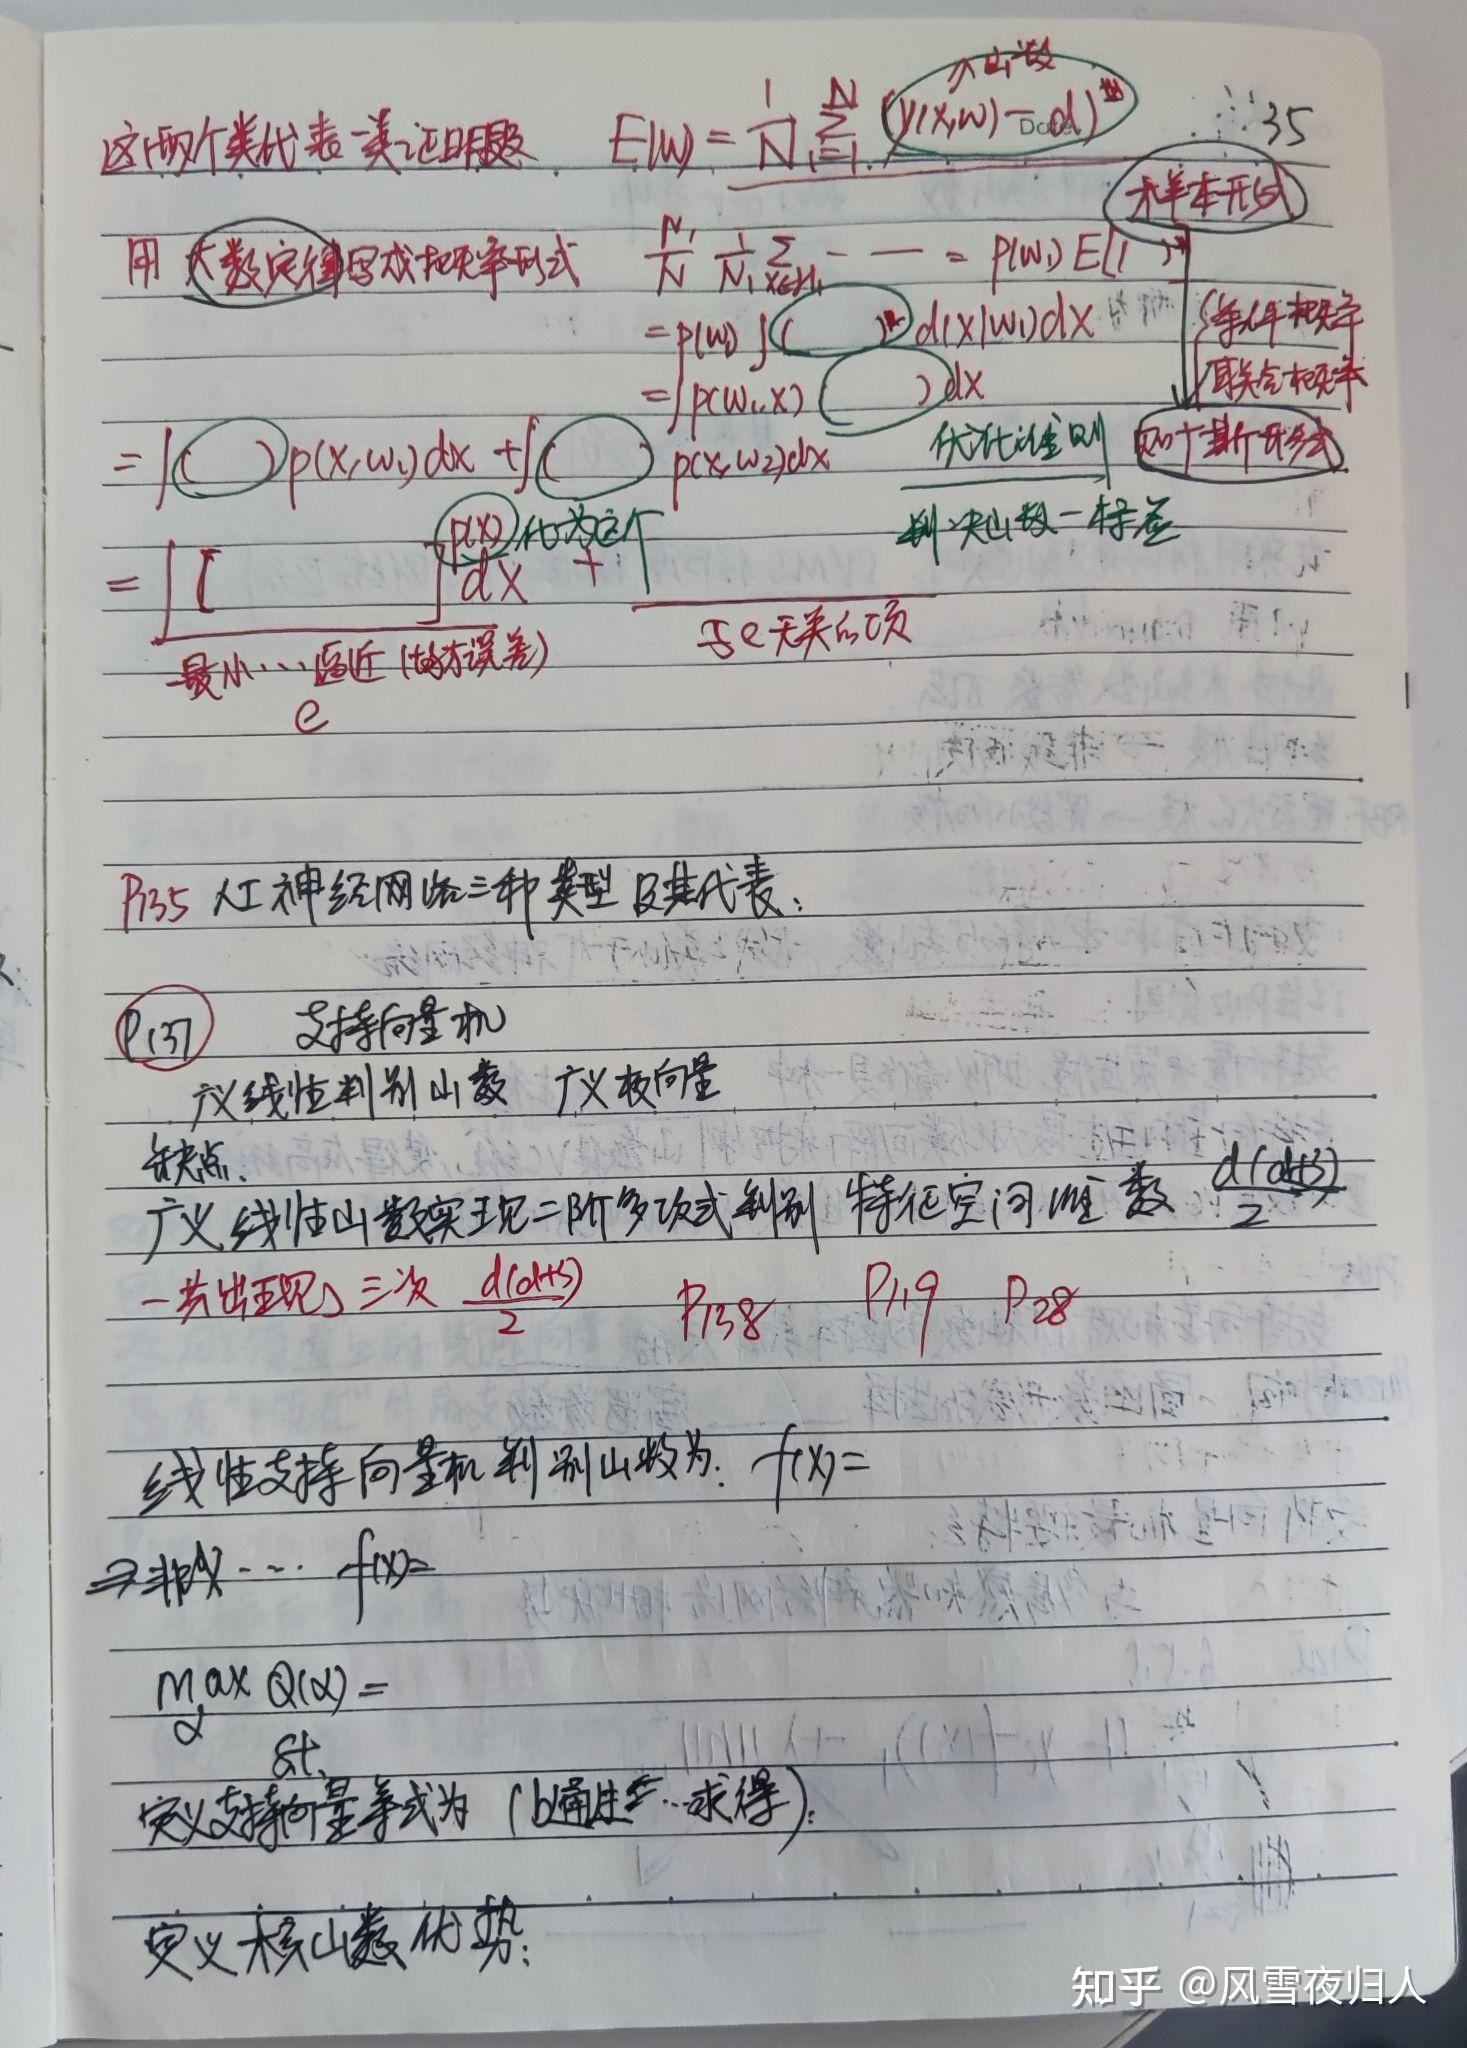 35
这两个类代表一类证明题 E(w) = 1/N Σ_{i=1}^{N} (y(x,w) - d)²
样本形式
用大数定律写成概率形式 N₁/N 1/N₁ Σ_{x∈H₁} - — = p(w₁) E[( )²]
= p(w₁) ∫( )² d(x|w₁)dx
条件概率
= ∫p(w₁,x) ( )dx
联合概率
= ∫( )p(x,w₁)dx + ∫( ) p(x,w₂)dx
优化准则
判决函数-标签
= ∫[ ]p(x)dx +
化为这个
最小…逼近(均方误差)
e
与e无关的项
P135 人工神经网络三种类型及其代表:
P137 支持向量机
广义线性判别函数 广义权向量
缺点.
广义线性函数实现二阶多项式判别 特征空间维数 d(d+3)/2
一共出现三次 d(d+3)/2 P138 P119 P28
线性支持向量机判别函数为: f(x)=
⇒ 非 … f(x)=
max_α Q(α) =
st.
定义支持向量等式为 (b通过…求得):
定义核函数优势:
知乎 @风雪夜归人